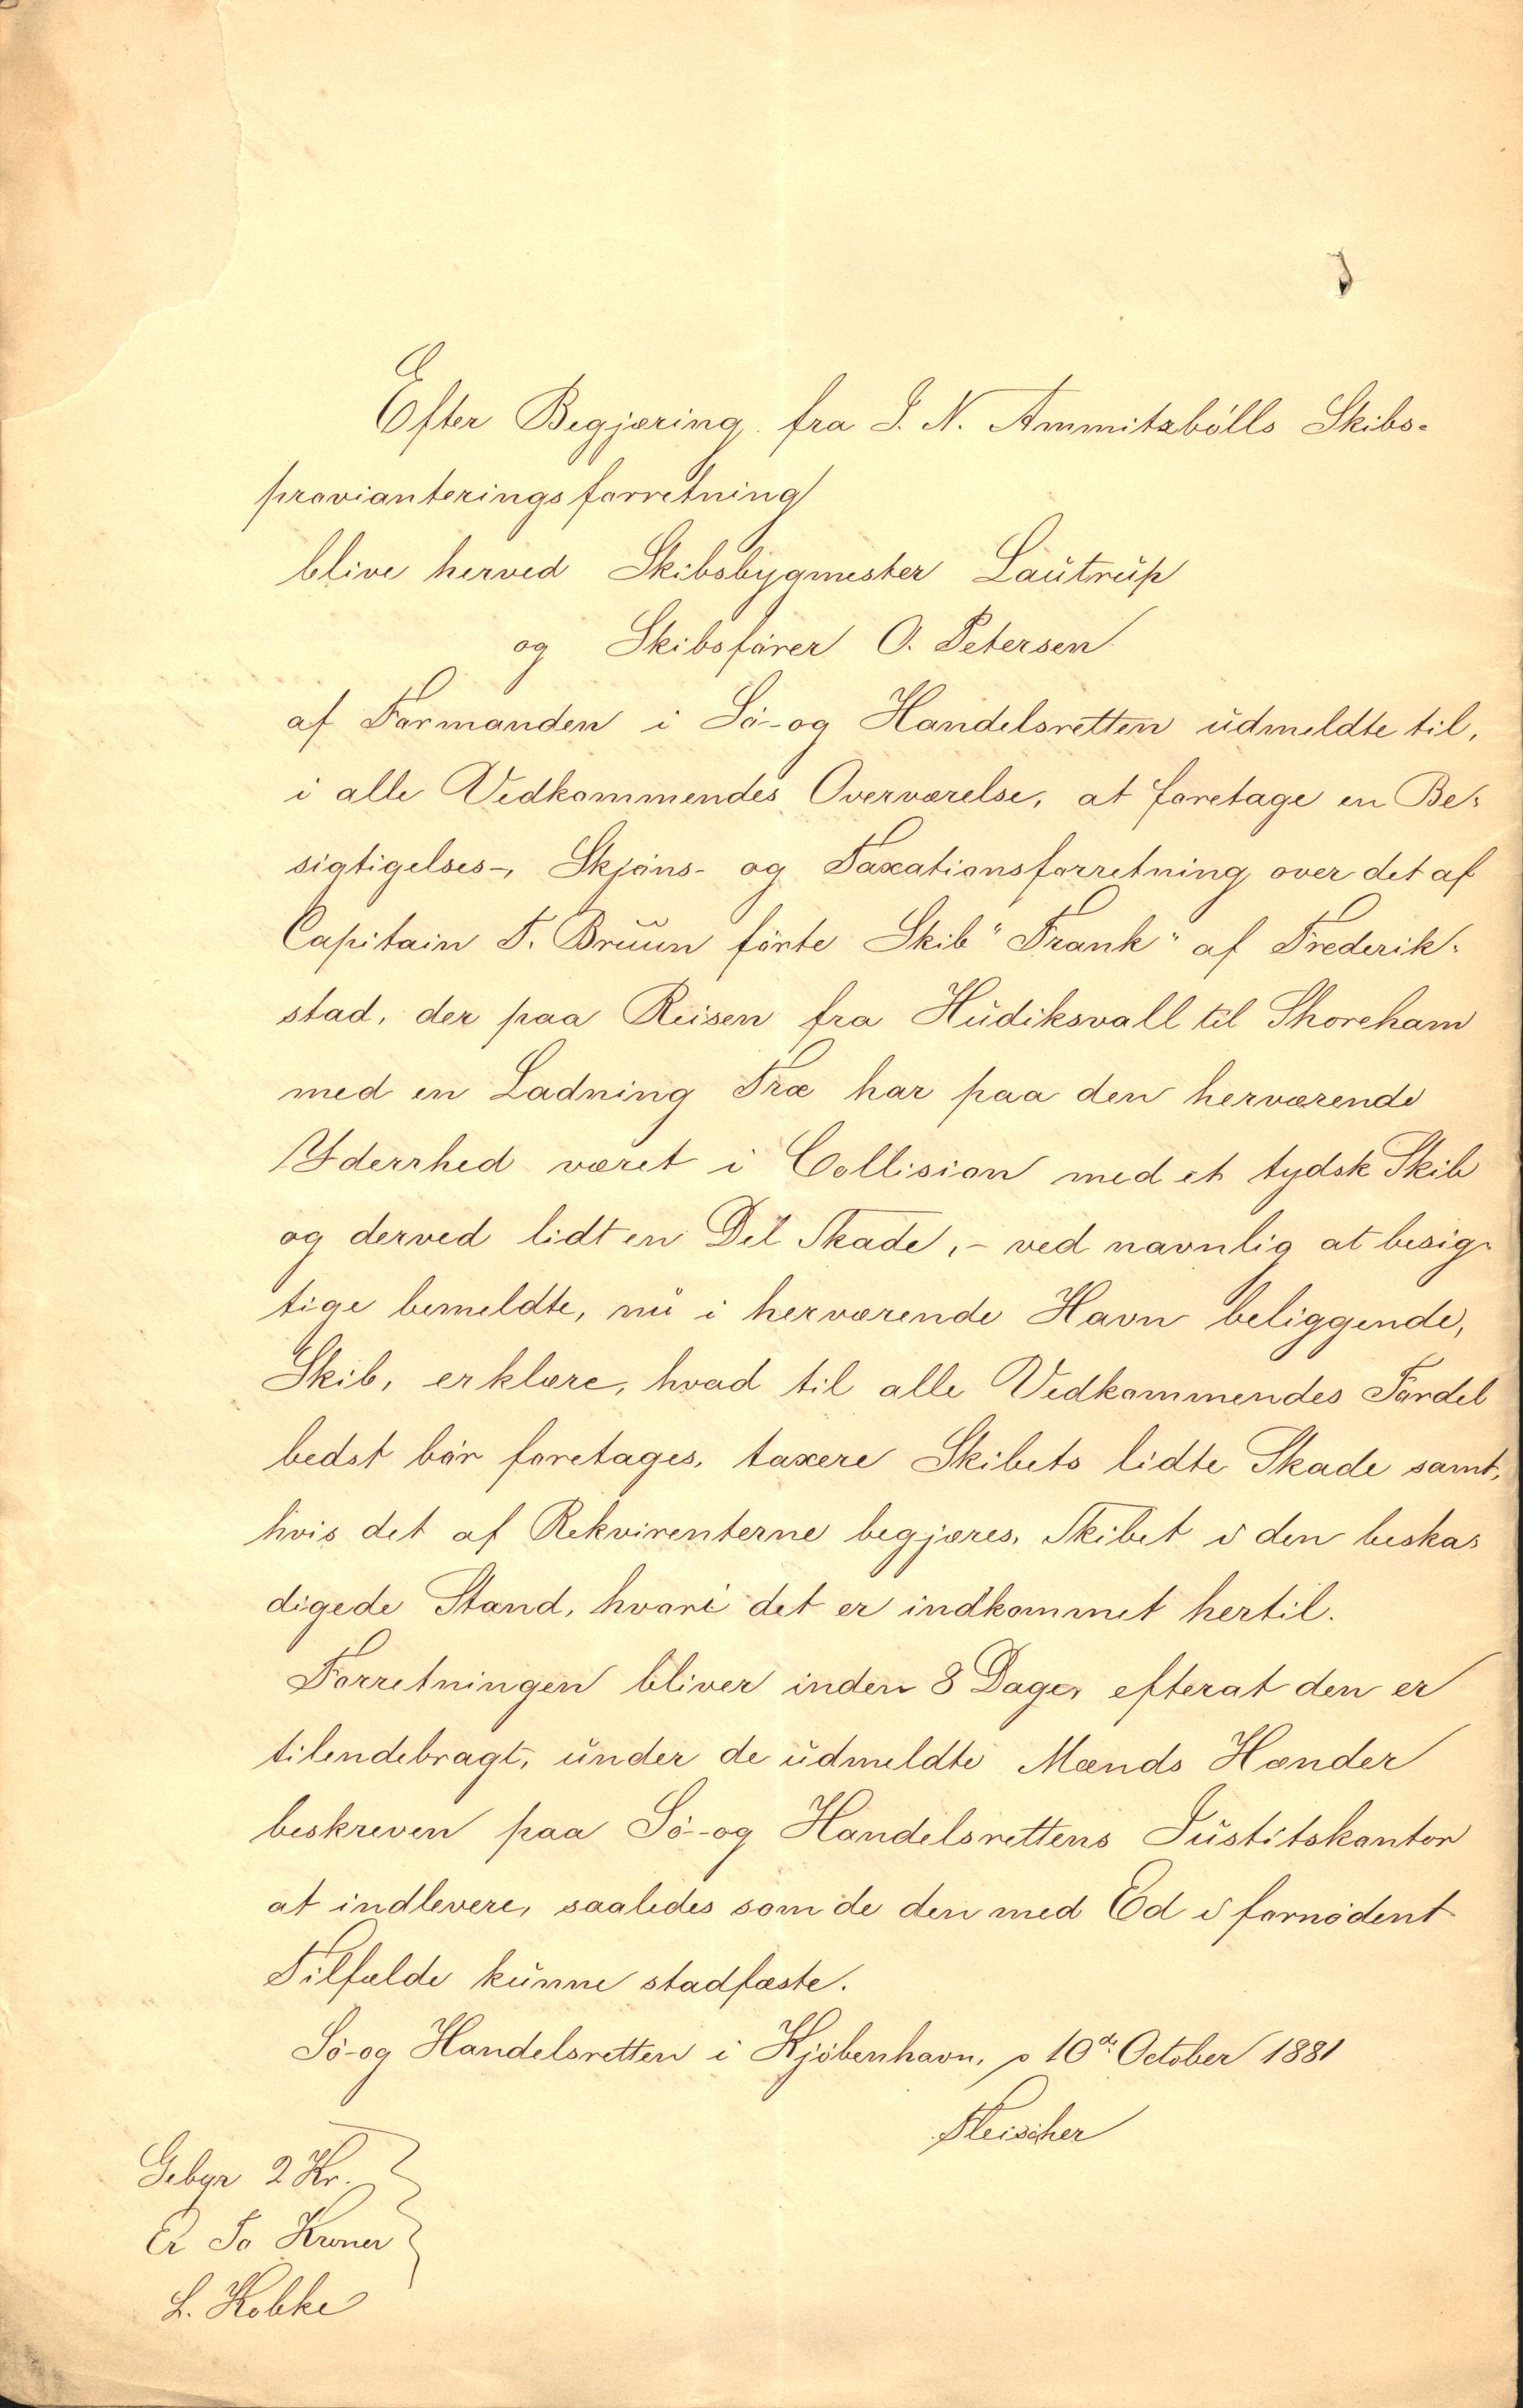 Efter Begjæring fra J. N. Ammitzbölls Skibs-
provianteringsforretning
blive herved Skibsbygmester Lautrup
og Skibsförer O. Petersen
af Formanden i Sö- og Handelsretten udmeldte til,
i alle Vedkommendes Overværelse, at foretage en Be-
sigtigelses-, Skjöns- og Taxationsforretning over det af
Capitain T. Bruun förte Skib "Frank" af Frederik-
stad, der paa Reisen fra Hudiksvall til Shoreham
med en Ladning Træ har paa den herværende
Yderrhed været i Collision med et tydsk Skib
og derved lidt en Del Skade, - ved navnlig at besig-
tige bemeldte, nu i herværende Havn beliggende,
Skib, erklære, hvad til alle Vedkommendes Fordel
bedst bör foretages, taxere Skibets lidte Skade samt,
hvis det af Rekvirenterne begjæres, Skibet i den beska-
digede Stand, hvori det er indkommet hertil.
Forretningen bliver inden 8 Dage, efterat den er
tilendebragt, under de udmeldte Mænds Hænder
beskreven paa Sö- og Handelsrettens Justitskontor
at indlevere, saaledes som de den med Ed i fornödent
Tilfælde kunne stadfæste.
Sö- og Handelsretten i Kjöbenhavn, p 10de October 1881
Fleischer
Gebyr 2 Kr.
Er To Kroner
L. Kobke